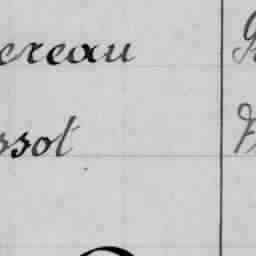 ereau
ssot